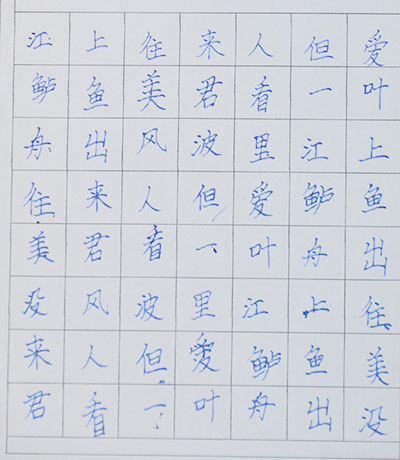 江上往来人但爱
鲈鱼美君看一叶
舟出风波里江上
往来人但爱鲈鱼
美君看一叶舟出
没风波里江上往
来人但爱鲈鱼美
君看一叶舟出没